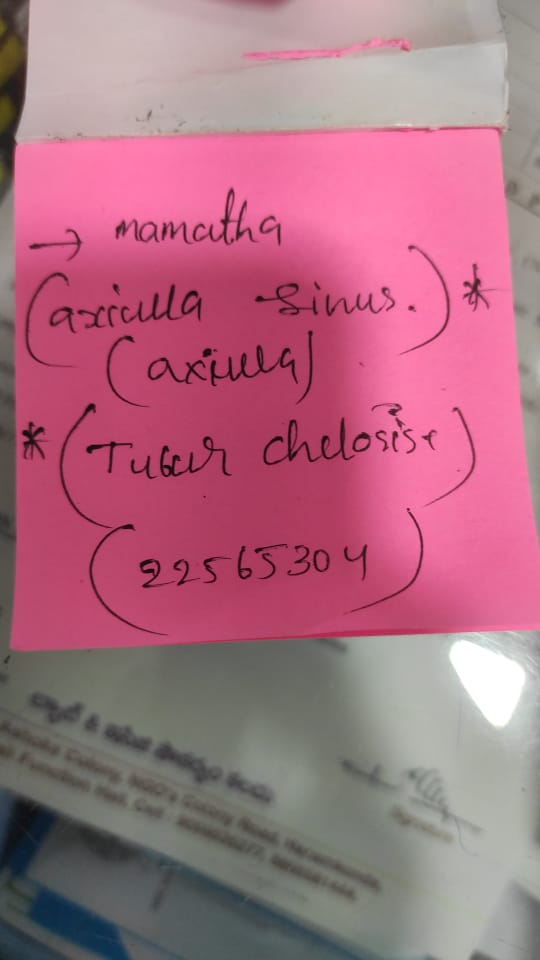 → mamatha
(axiculla sinus.) *
(axiulla)
* (Tuber chelosis.)
(22565304)
Colony, NGO's Colony Road,
Function Hall, Cell :
Signature